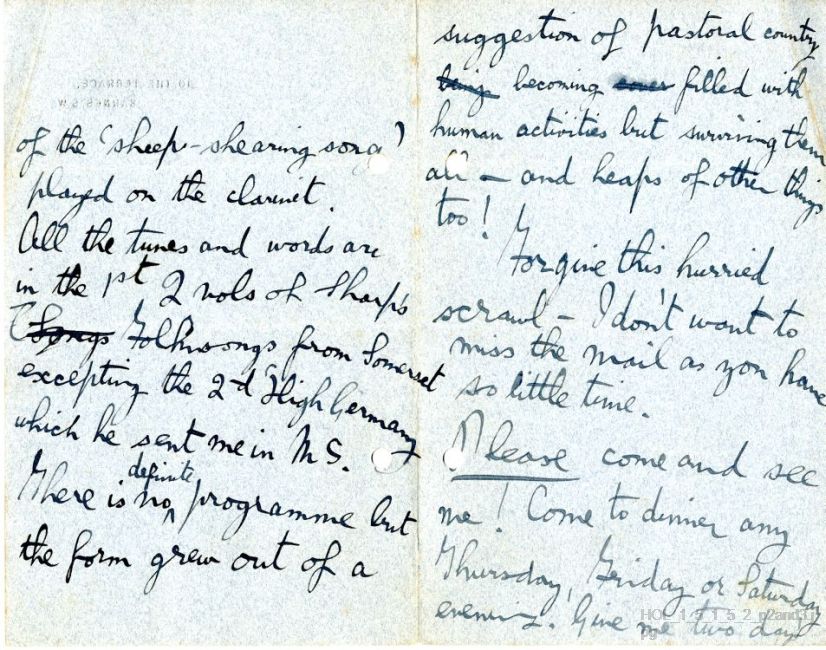 of the 'sheep-shearing song'
played on the clarinet.
All the tunes and words are
in the 1st 2 vols of Sharp's
Songs Folksongs from Somerset
excepting the 2d "High Germany
which he sent me in M S.
definite
There is no programme but
the form grew out of a
suggestion of pastoral country
being becoming filled with
human activities but surviving them
all – and heaps of other things
too!
Forgive this hurried
scrawl – I don't want to
miss the mail as you have
so little time.
Please come and see
me! Come to dinner any
Thursday, Friday or Saturday
evening. Give me two days